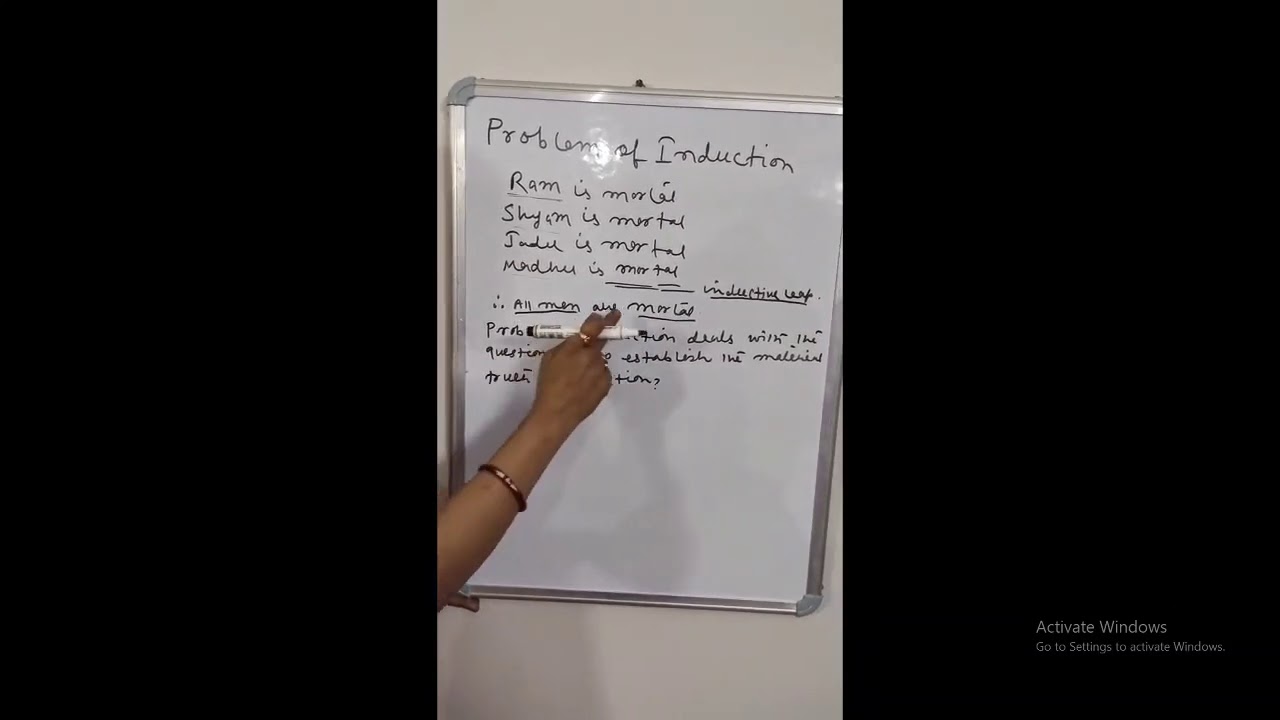 Problem of Induction
Ram is mortal
Shyam is mortal
Jadu is mortal
Madhu is mortal
inductive leap.
∴ All men are mortal
Prob tion deals with the
question to establish the material
truth tion?
Activate Windows
Go to Settings to activate Windows.